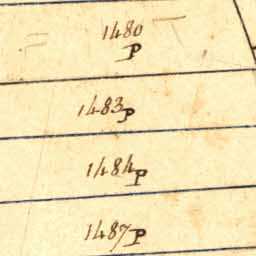 1480
P
1483P
1484P
1487P